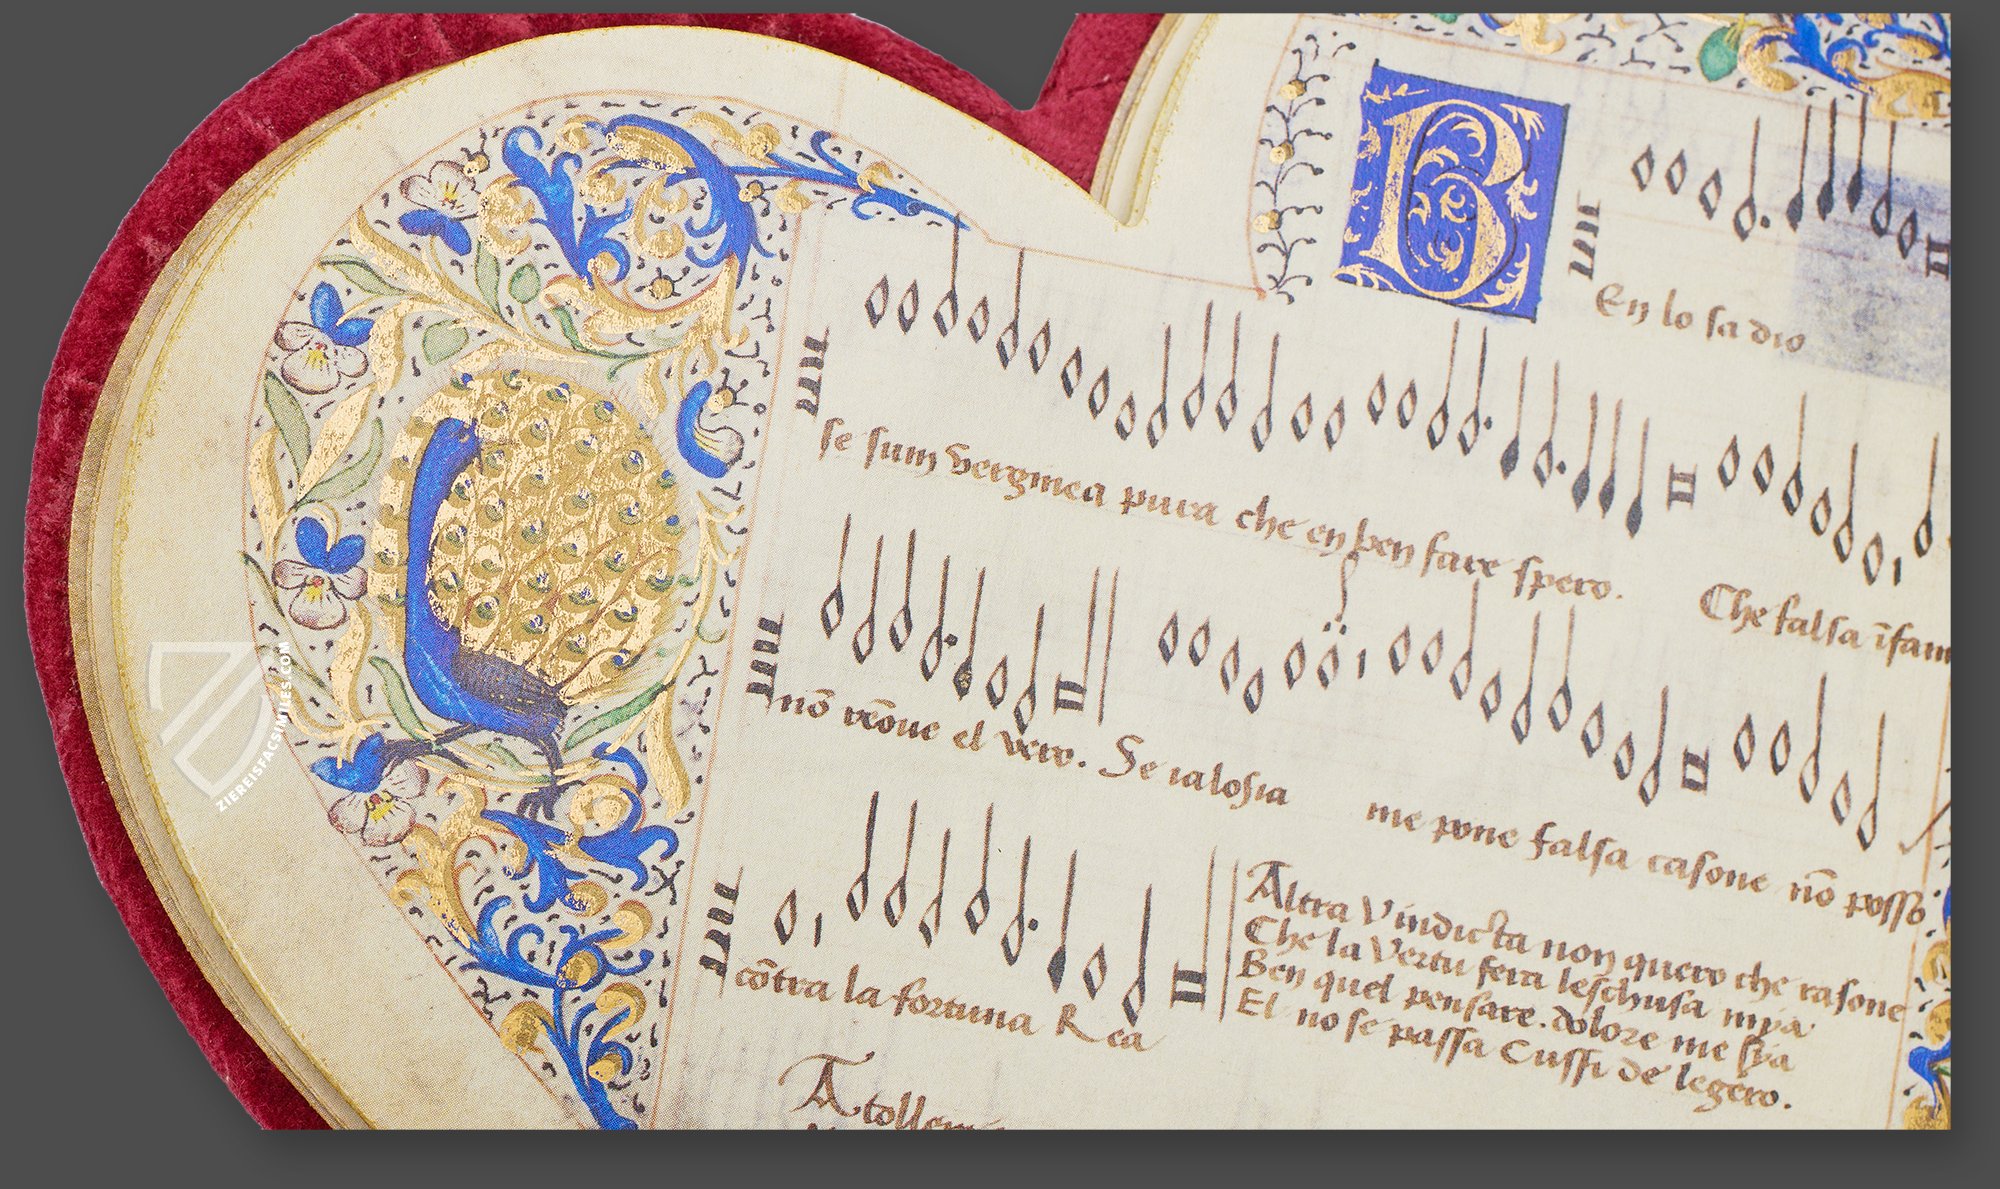 B
En lo sa dio
se sum verginea pura che en ben fare spero. Che falsa īfam
nō rēoue el vero. Se ialosia me pone falsa casone nō posso
cōtra la fortuna R ca
Altra Vindicta non quero che rasone
Che la Vertu fera leschusa mpa
Ben quel pensare. dolore me sya
El no se passa Cussi de legero.
A tollem
ZIEREISFACSIMILES.COM